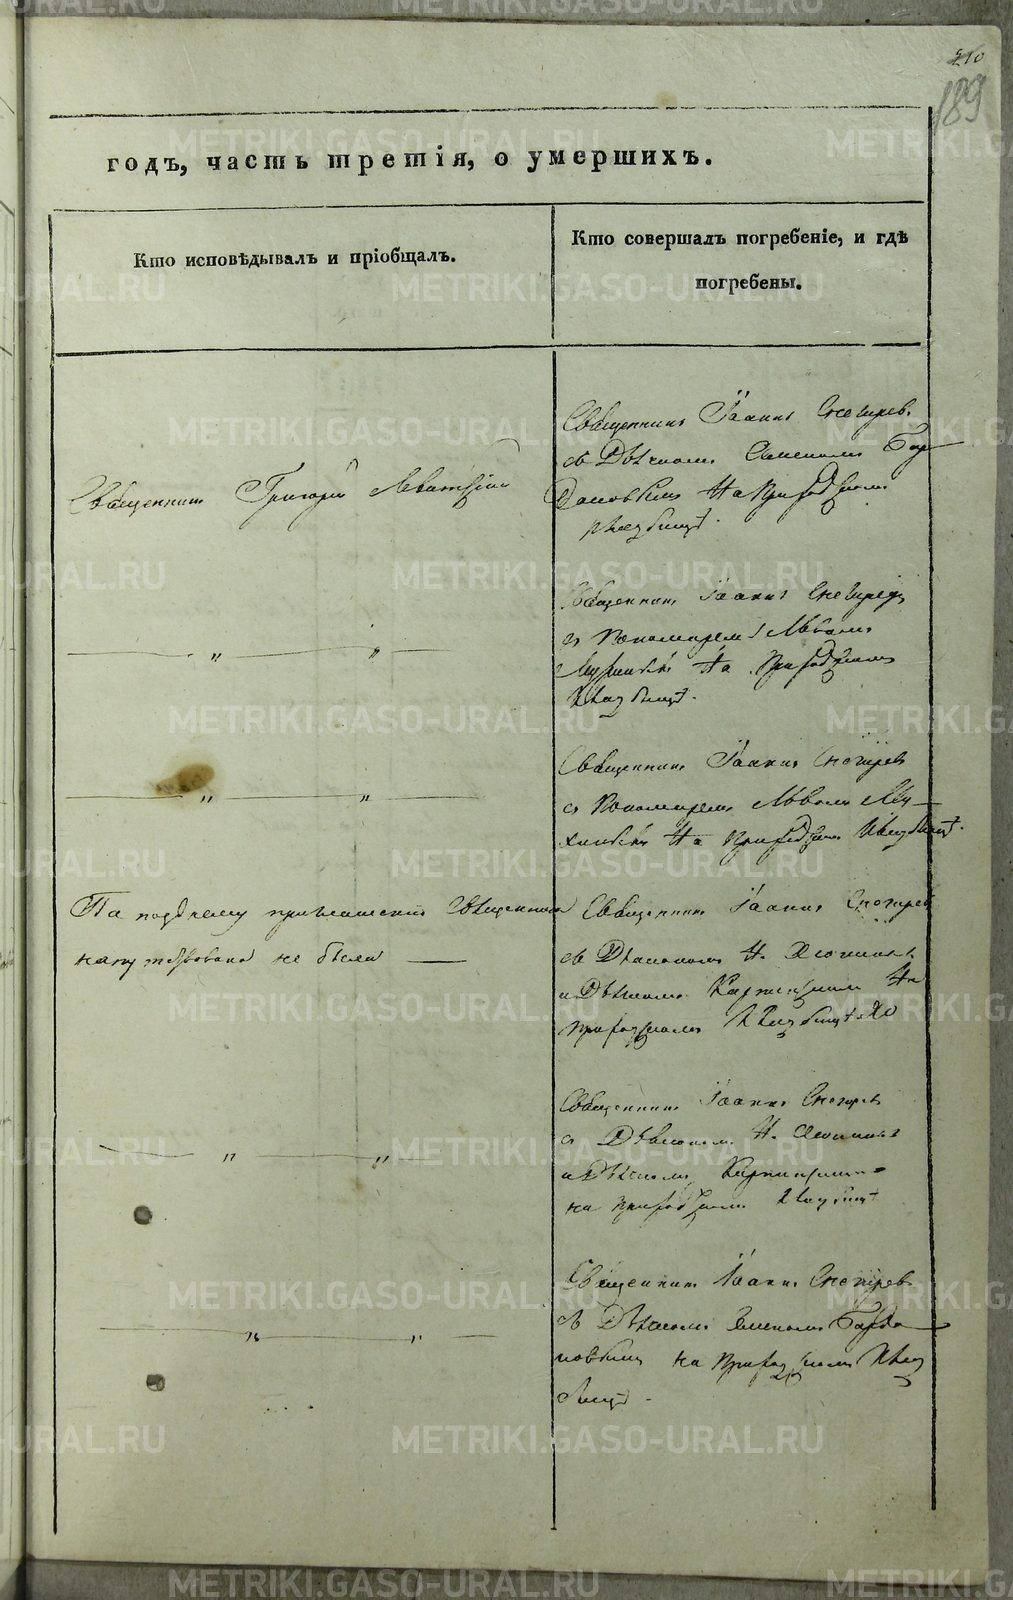 210
189
годъ, часть третія, о умершихъ.
Кто исповѣдывалъ и пріобщалъ.
Кто совершалъ погребеніе, и гдѣ
погребены.
Священникъ Григорій
Священникъ Іоаннъ Снегирев
съ Дьячкомъ Семеномъ
на приходскомъ
кладбищѣ.
— „ — „ —
Священникъ Іоаннъ Снегирев
съ Пономаремъ Львомъ
на приходскомъ
кладбищѣ.
— „ — „ —
Священникъ Іоаннъ Снегирев
съ Пономаремъ Львомъ
на приходскомъ кладбищѣ.
По позднему приглашению Священника
напутствована не была —
Священникъ Іоаннъ Снегирев
съ Діакономъ Н.
и Дьячкомъ на
приходскомъ кладбищѣ
— „ — „ —
Священникъ Іоаннъ Снегирев
съ Діакономъ Н.
и Дьячкомъ
на приходскомъ кладбищѣ
— „ — „ —
Священникъ Іоаннъ Снегирев
съ Дьячкомъ Семеномъ
на приходскомъ клад
бищѣ.
METRIKI.GASO-URAL.RU